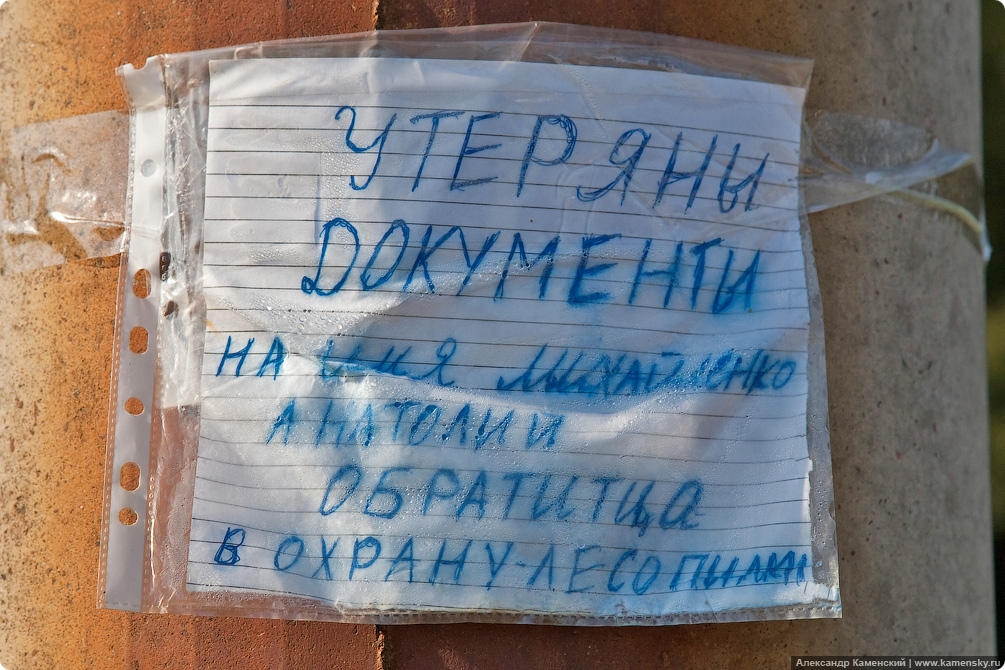 УТЕРЯНЫ
ДОКУМЕНТЫ
НА ИМЯ МИХАЙЛЕНКО
АНАТОЛИИ
ОБРАТИТЦА
В ОХРАНУ-ЛЕСОПИЛКИ
Александр Каменский | www.kamensky.ru